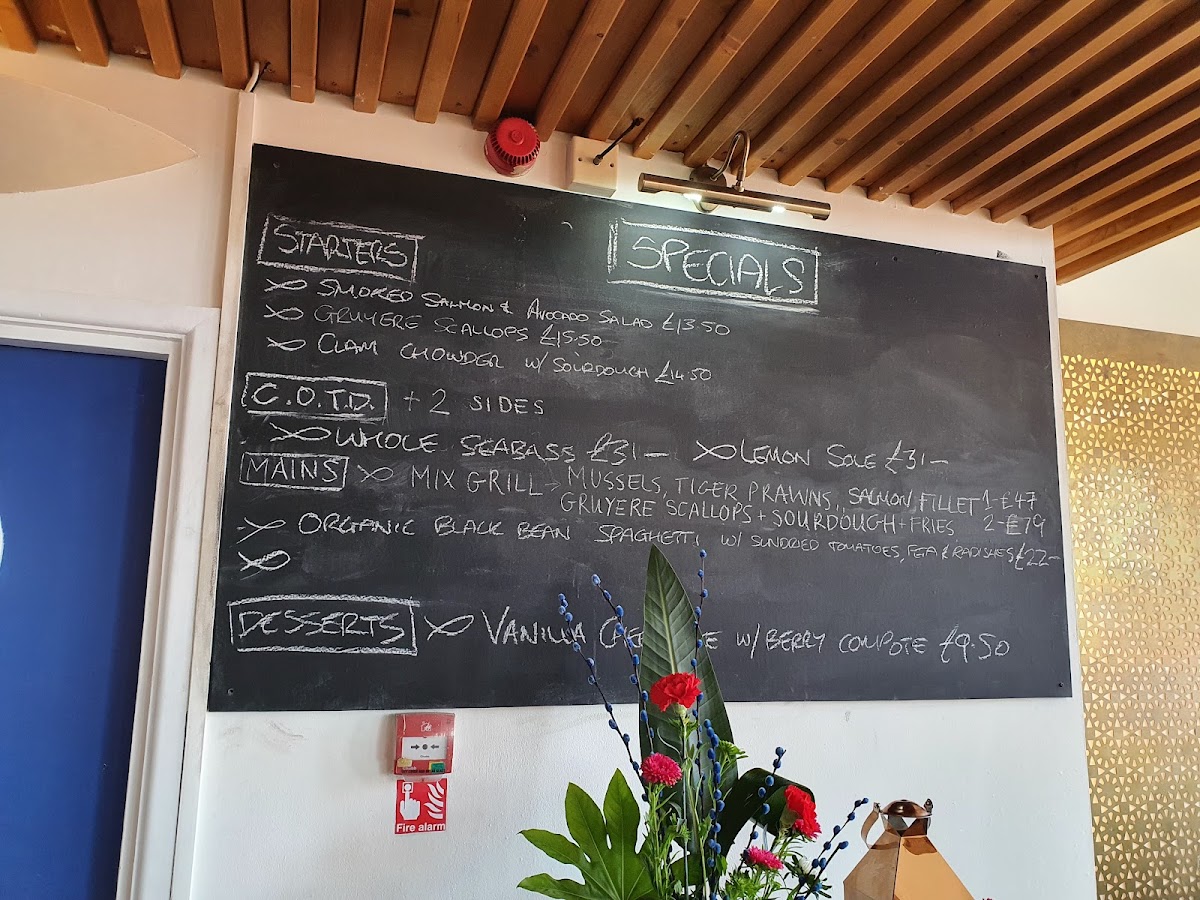 SPECIALS
STARTERS
SMOKED SALMON & AVOCADO SALAD £13.50
GRUYERE SCALLOPS £15.50
CLAM CHOWDER W/ SOURDOUGH £14.50
C.O.T.D. + 2 SIDES
WHOLE SEABASS £31- LEMON SOLE £31-
MAINS MIX GRILL → MUSSELS, TIGER PRAWNS, SALMON FILLET 1-£47
GRUYERE SCALLOPS + SOURDOUGH + FRIES 2-£79
ORGANIC BLACK BEAN SPAGHETTI W/ SUNDRIED TOMATOES, FETA & RADISHES £22-
DESSERTS VANILLA W/ BERRY COMPOTE £9.50
Fire alarm